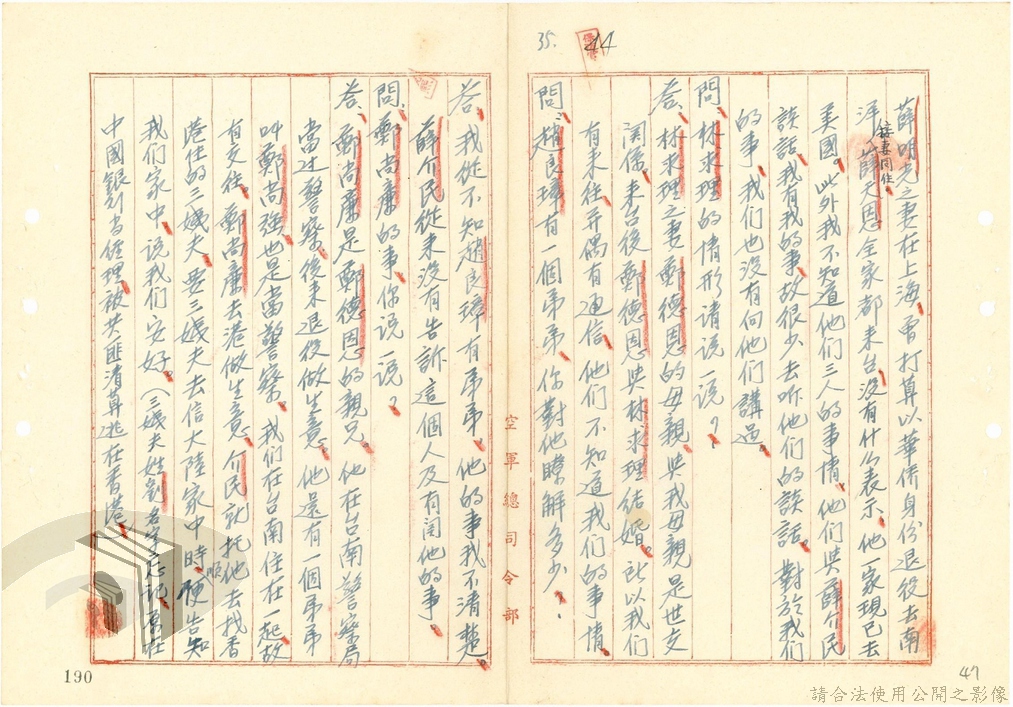 35. 44
薛明光之妻在上海、曾打算以華僑身份退役去南
洋接妻同住、薛天恩全家都来台、沒有什么表示、他一家現已去
美國。此外我不知道他們三人的事情、他們與薛介民
談話、我有我的事、故很少去听他們的談話。對於我們
的事、我們也沒有向他們講過。
問、林求理的情形請说一说？
答、林求理之妻鄭德恩的母親、與我母親是世交
関係、来台後鄭德恩與林求理结婚。所以我们
有来往、并偶有通信、他們不知道我們的事情。
問、趙良璋有一個弟弟、你對他瞭解多少？
空軍總司令部
答、我從不知趙良璋有弟弟、他的事我不清楚。
薛介民從来沒有告訴這個人及有関他的事。
問、鄭尚廉的事、你说一说？
答、鄭尚廉是鄭德恩的親兄。他在台南警察局
當过警察、後来退役做生意。他還有一個弟弟
叫鄭尚强也是當警察。我們在台南住在一起、故
有交往、鄭尚廉去港做生意、介民就托他去找香
港住的三姨夫、要三姨夫去信大陸家中時、順便告知
我们家中、说我们安好。（三姨夫姓劉名字忘記、原在
中國銀行当经理、被共匪清算逃在香港）
190
47
請合法使用公開之影像